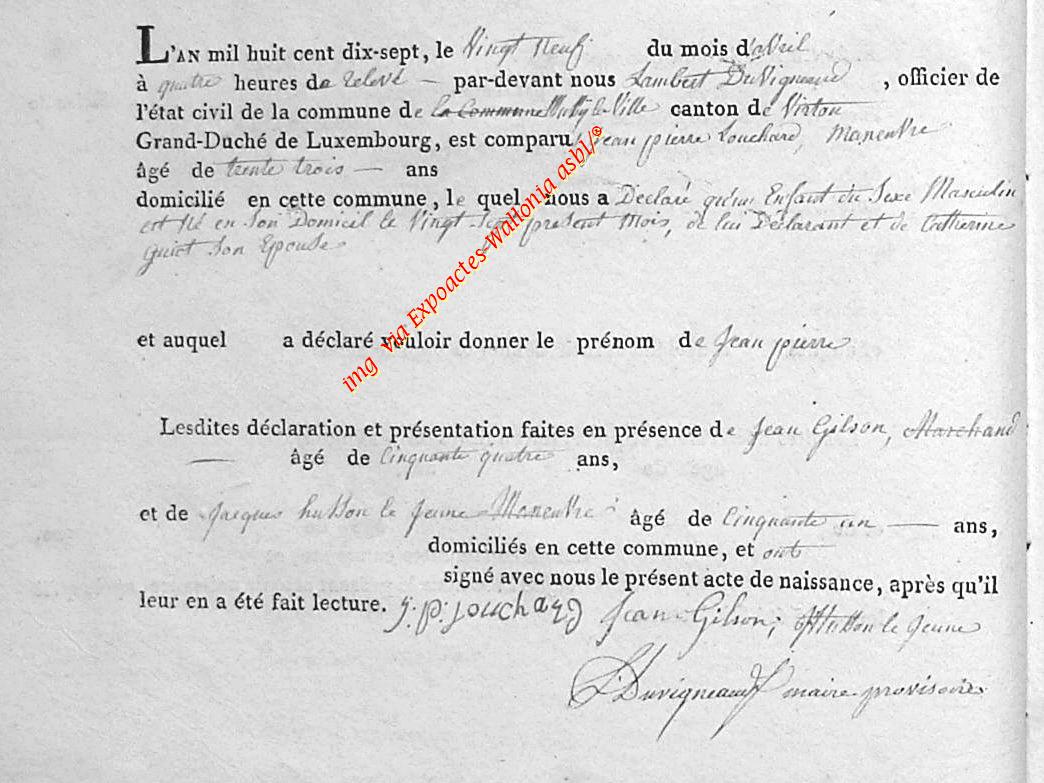 L'AN mil huit cent dix-sept, le Vingt Neuf du mois d'avril
à quatre heures de relevé — par-devant nous Lambert Duvigneaud, officier de
l'état civil de la commune de la Commune Ville canton de Virton
Grand-Duché de Luxembourg, est comparu Jean pierre Louchard, Maneuvre
âgé de trente trois — ans
domicilié en cette commune, le quel nous a Déclaré qu'un Enfant du Sexe Masculin
est Né en Son Domicil le Vingt présent Mois, de lui Déclarant et de Catherine
Son Epouse
et auquel a déclaré vouloir donner le prénom de Jean pierre
Lesdites déclaration et présentation faites en présence de Jean Gilson, Marchand
— âgé de Cinquante quatre ans,
et de Jacques hutson le Jeune Maneuvre âgé de Cinquante un — ans,
domiciliés en cette commune, et ont
signé avec nous le présent acte de naissance, après qu'il
leur en a été fait lecture. j.p. Jean Gilson, le jeune
Duvigneaud maire provisoire
img via Expoactes-Wallonia asbl/®